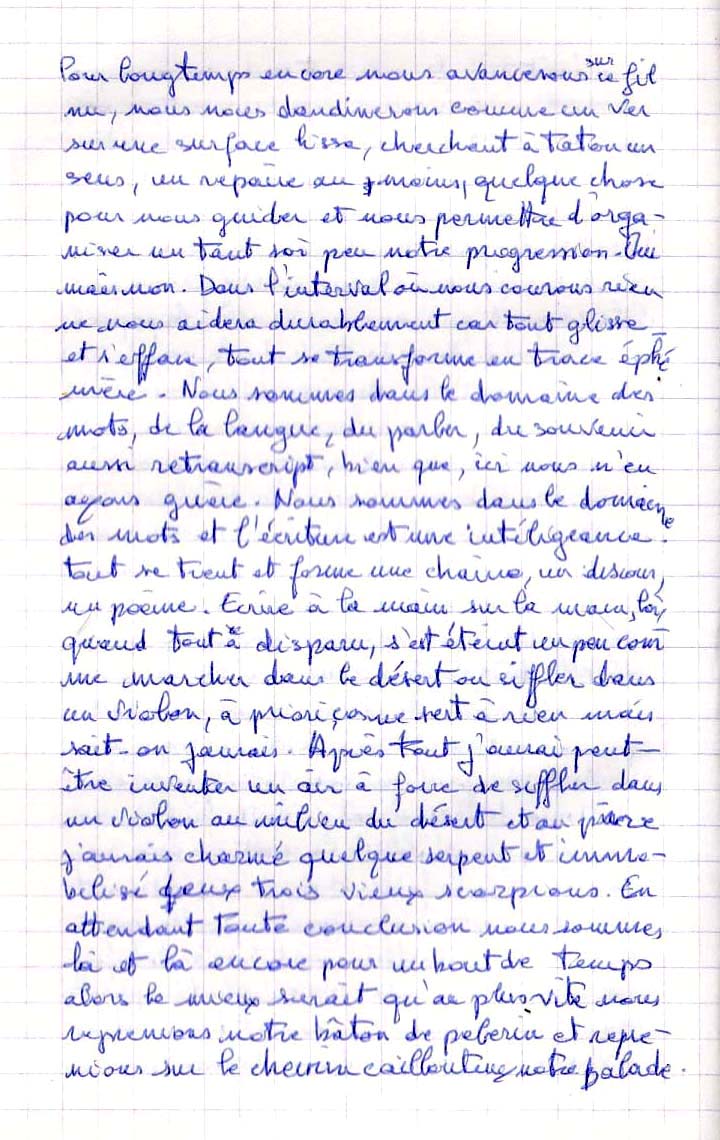 Pour longtemps encore nous avancerons sur ce fil
nu, nous nous dandinerons comme un ver
sur une surface lisse, cherchant à taton un
sens, un repaire au moins, quelque chose
pour nous guider et nous permettre d'orga-
niser un tant soi peu notre progression. Oui
mais non. Dans l'interval où nous courons rien
ne nous aidera durablement car tout glisse
et s'efface, tout se transforme en trace éphé-
mère. Nous sommes dans le domaine des
mots, de la langue, du parler, du souvenir
aussi retranscript, bien que, ici nous n'en
ayons guère. Nous sommes dans le domaine
des mots et l'écriture est une intéligeance.
tout se tient et forme une chaîne, un discour,
un poème. Ecrire à la main sur la main, loin,
quand tout à disparu, s'est éteint un peu com
me marcher dans le désert ou siffler dans
un violon, à priori ça ne sert à rien mais
sait-on jamais. Après tout j'aurai peut-
être inventer un air à force de siffler dans
un violon au milieu du désert et au
j'aurais charmé quelque serpent et immo-
bilisé deux trois vieux scorpions. En
attendant toute conclusion nous sommes
là et là encore pour un bout de temps
alors le mieux serait qu'au plus vite nous
reprenions notre bâton de pelerin et repre-
nions sur le chemin caillouteux notre balade.